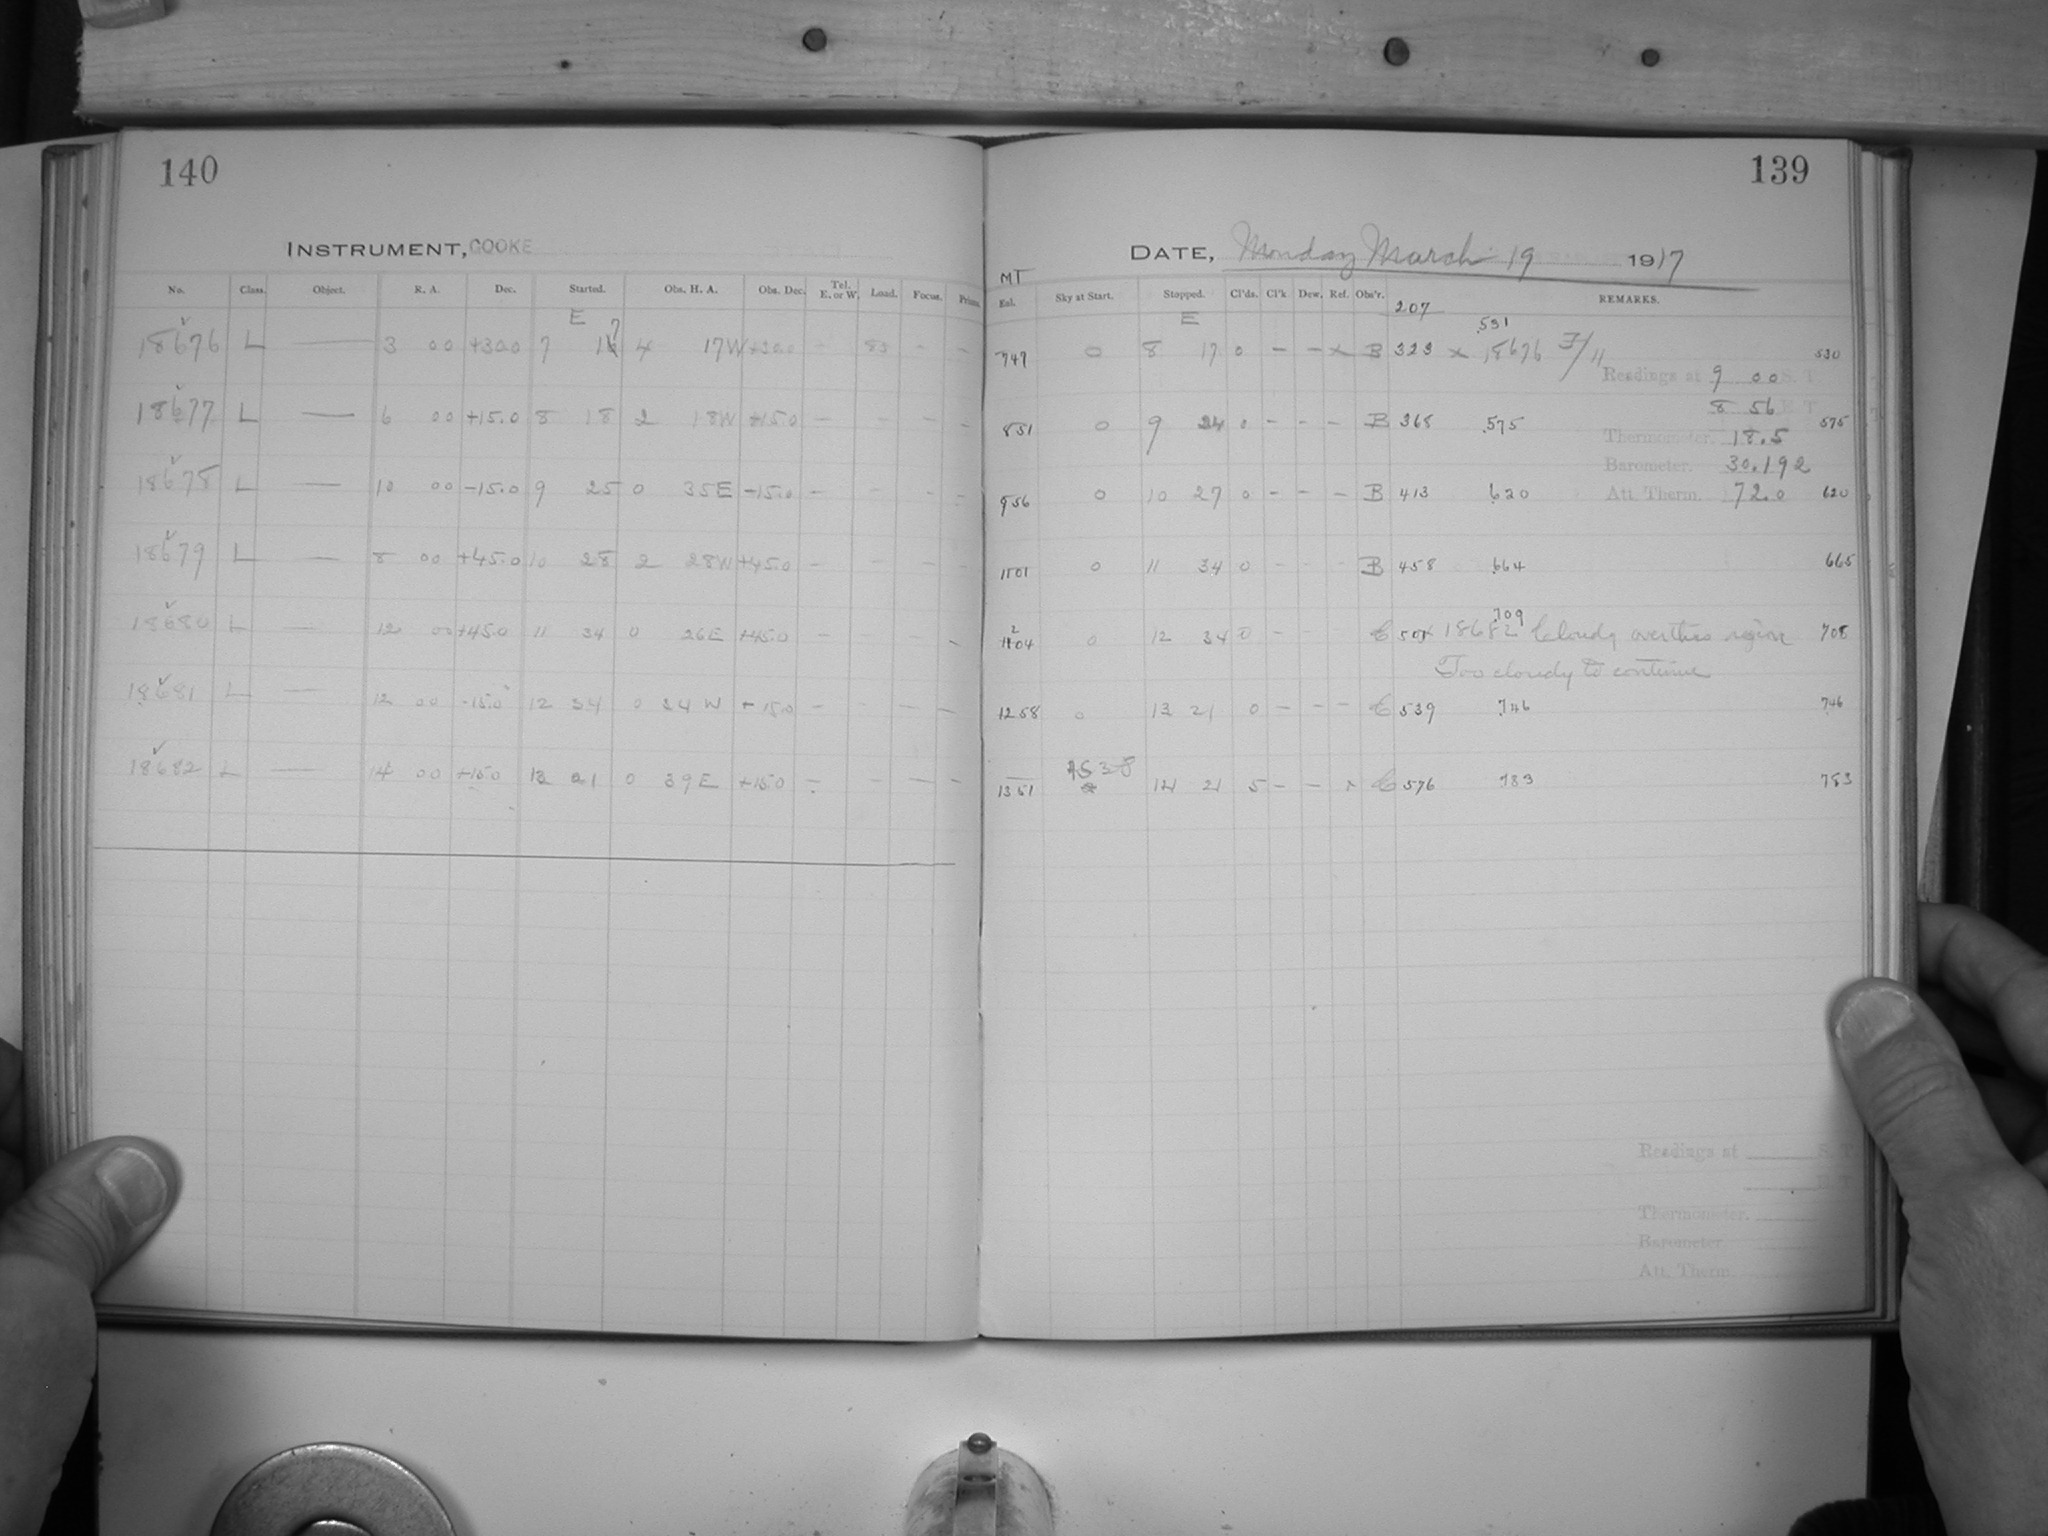 140
139
INSTRUMENT, COOKE
DATE, Monday March 19 1917
MT
No. Class. Object. R. A. Dec. Started. Obs. H. A. Obs. Dec. Tel. E. or W. Load. Focus. Prism.
Sky at Start. Stopped. Cl'ds. Cl'k Dew. Ref. Obs'r. REMARKS.
207
E E
531
18676 L — 3 00 +30.0 7 4 17W +30.0 — 80 — —
747 0 8 17 0 — — x B 323 x 18676 3/11 530
Readings at 9 00 S. T.
8 56 E. T.
18677 L — 6 00 +15.0 8 18 2 18W +15.0 — — — —
851 0 9 24 0 — — — B 368 575 575
Thermometer. 18.5
Barometer. 30.192
18678 L — 10 00 -15.0 9 25 0 35E -15.0 — — — —
956 0 10 27 0 — — — B 413 620 620
Att. Therm. 72.0
18679 L — 8 00 +45.0 10 28 2 28W +45.0 — — — —
1101 0 11 34 0 — — — B 458 664 665
709
18680 L — 12 00 +45.0 11 34 0 26E +45.0 — — —
0 12 34 0 — — — C x 18682 Cloudy over this region 708
Too cloudy to continue
18681 L — 12 00 -15.0 12 34 0 34 W 15.0 — — — —
1258 0 13 21 0 — — — C 539 746 746
18682 L — 14 00 +15.0 13 21 0 39E +15.0 — — — —
1351 14 21 5 — — x C 576 783 783
Readings at S. T.
Thermometer.
Barometer
Att. Therm.